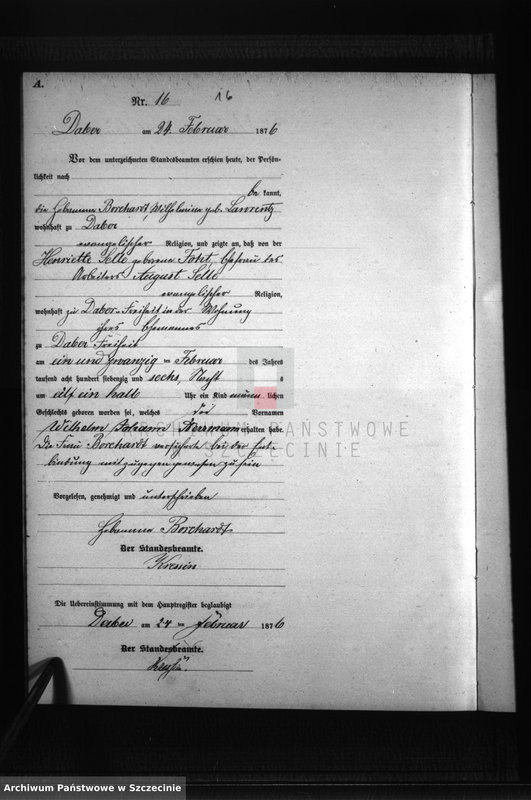 A.
Nr. 16 16
Daber am 24. Februar 1876
Vor dem unterzeichneten Standesbeamten erschien heute, der Persön-
lichkeit nach
be kannt,
die Hebamme Borchardt, Wilhelmine geb. Lawrentz
wohnhaft zu Daber
evangelischer Religion, und zeigte an, daß von der
Henriette Selle geborene Ehefrau des
Arbeiters August Selle
evangelischer Religion,
wohnhaft zu Daber-Freiheit in der Wohnung
ihres Ehemannes
zu Daber Freiheit
am ein und zwanzig ten Februar des Jahres
tausend acht hundert siebenzig und sechs, Nachts
um elf ein halb Uhr ein Kind männ lichen
Geschlechts geboren worden sei, welches die Vornamen
Wilhelm Herrmann erhalten habe.
Die Frau Borchardt versicherte bei der Ent-
bindung mit zugegen gewesen zu sein
Vorgelesen, genehmigt und unterschrieben
Hebamme Borchardt
Der Standesbeamte.
Die Uebereinstimmung mit dem Hauptregister beglaubigt
Daber am 24 ten Februar 1876
Der Standesbeamte.
PAŃSTWOWE
SZCZECINIE
Archiwum Państwowe w Szczecinie